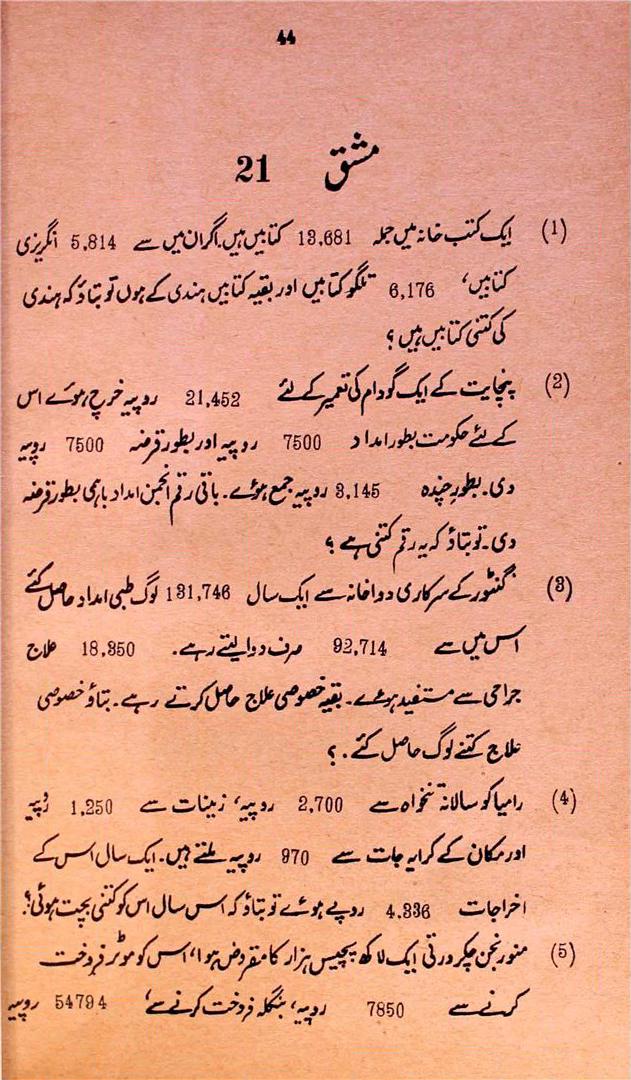 44
مشق 21
(1) ایک کتب خانہ میں جملہ 13,681 کتابیں ہیں۔ اگر ان میں سے 5,814 انگریزی
کتابیں، 6,176 تلگو کتابیں اور بقیہ کتابیں ہندی کے ہوں تو بتاؤ کہ ہندی
کی کتنی کتابیں ہیں؟
(2) پنچایت کے ایک گودام کی تعمیر کے لئے 21,452 روپیہ خرچ ہوئے اس
کے لئے حکومت بطور امداد 7500 روپیہ اور بطور قرضہ 7500 روپیہ
دی۔ بطور چندہ 3,145 روپیہ جمع ہوئے۔ باقی رقم انجمن امداد باہمی بطور قرضہ
دی۔ تو بتاؤ کہ یہ رقم کتنی ہے؟
(3) گنٹور کے سرکاری دواخانہ سے ایک سال 131,746 لوگ طبی امداد حاصل کئے
اس میں سے 92,714 صرف دوا لیتے رہے۔ 18,350 علاج
جراحی سے مستفید ہوئے۔ بقیہ خصوصی علاج حاصل کرتے رہے۔ بتاؤ خصوصی
علاج کتنے لوگ حاصل کئے۔؟
(4) رامیا کو سالانہ تنخواہ سے 2,700 روپیہ، زینات سے 1,250 روپیہ
اور مکان کے کرایہ جات سے 970 روپیہ ملتے ہیں۔ ایک سال اس کے
اخراجات 4,336 روپے ہوئے تو بتاؤ کہ اس سال اس کو کتنی بچت ہوئی؟
(5) منورنجن چکرورتی ایک لاکھ پچیس ہزار کا مقروض ہوا، اس کو موٹر فروخت
کرنے سے 7850 روپیہ، بنگلہ فروخت کرنے سے، 54794 روپیہ